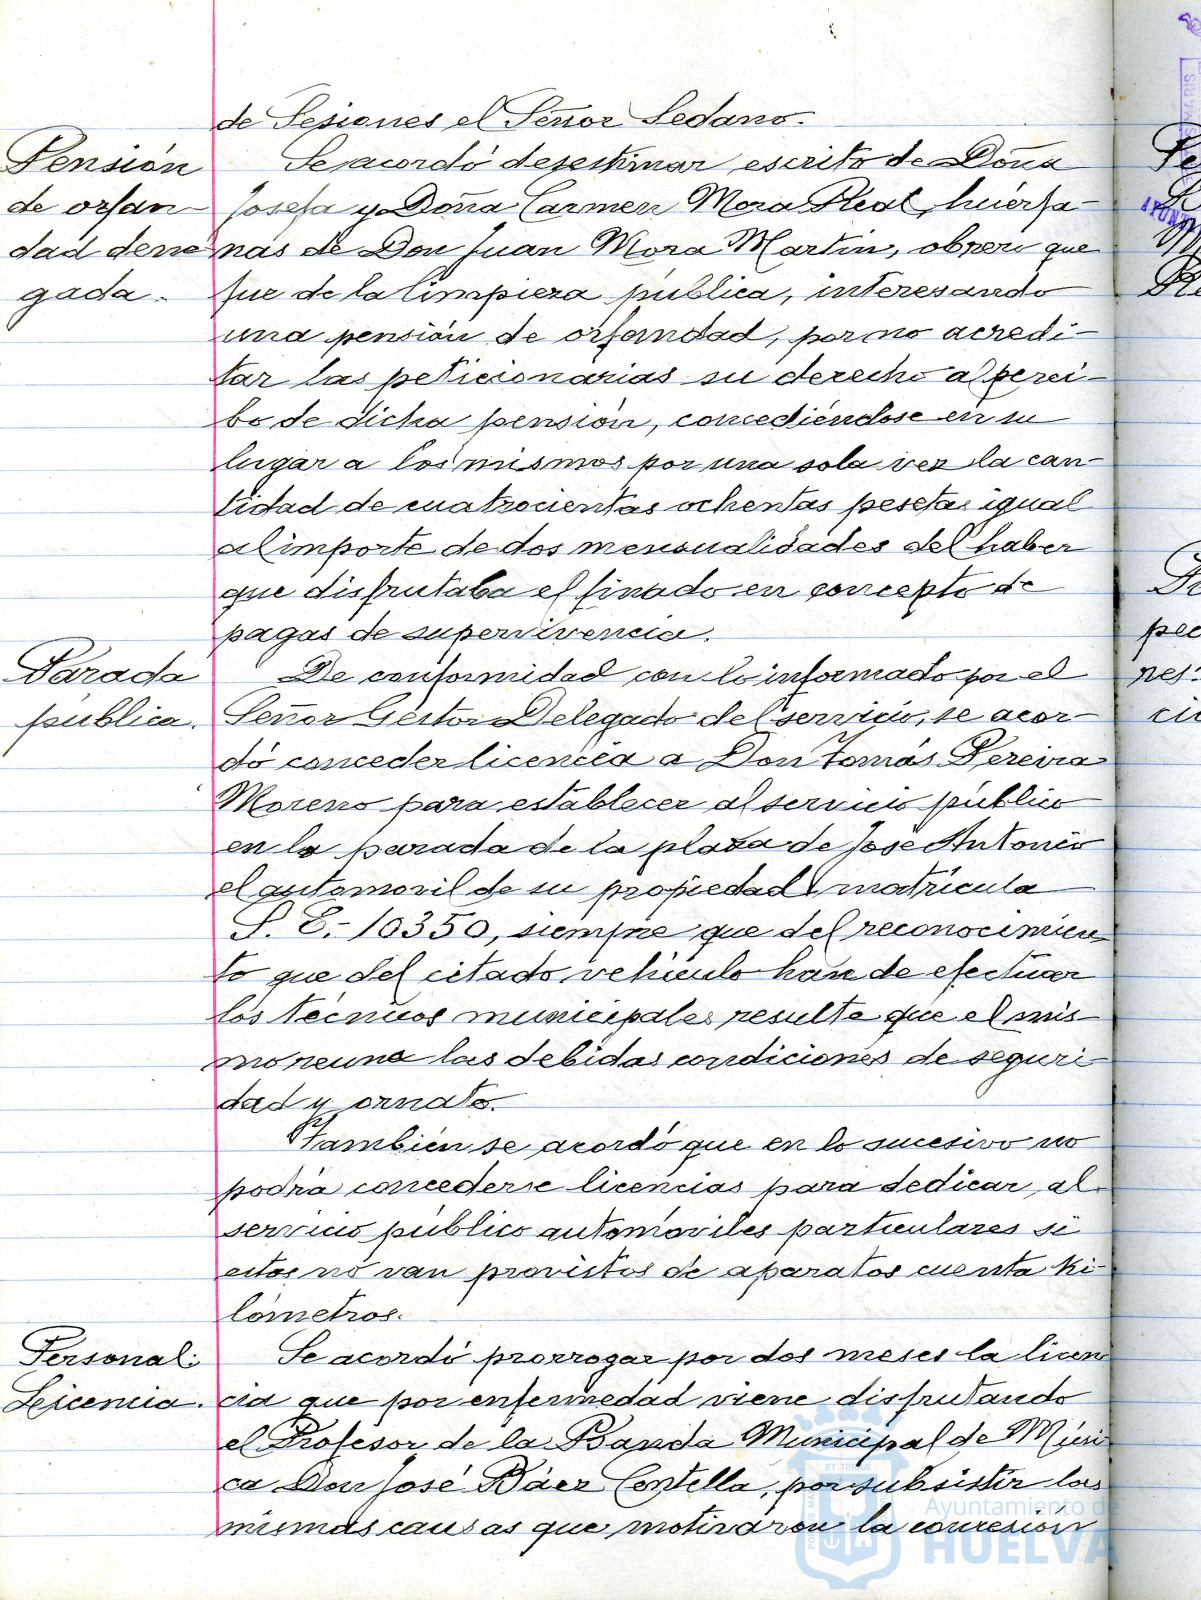 de Sesiones el Señor Sedano.
Pensión
de orfan-
dad dene
gada.
Se acordó desestimar escrito de Doña
Josefa y Doña Carmen Mora Real, huérfa-
nas de Don Juan Mora Martin, obrero que
fue de la limpieza pública, interesando
una pensión de orfandad, por no acredi-
tar las peticionarias su derecho al perci-
bo de dicha pensión, concediéndose en su
lugar a los mismos por una sola vez la can-
tidad de cuatrocientas ochentas pesetas igual
al importe de dos mensualidades del haber
que disfrutaba el finado en concepto de
pagas de supervivencia.
Parada
pública.
De conformidad con lo informado por el
Señor Gestor Delegado del servicio, se acor-
dó conceder licencia a Don Tomás Pereira
Moreno para establecer al servicio público
en la parada de la plaza de José Antonio
el automovil de su propiedad matrícula
S. E.- 10350, siempre que del reconocimien
to que del citado vehículo han de efectuar
los técnicos municipales resulte que el mis-
mo reuna las debidas condiciones de seguri-
dad y ornato.
También se acordó que en lo sucesivo no
podrá concederse licencias para dedicar al
servicio público automóviles particulares si
estos no van provistos de aparatos cuenta ki-
lómetros.
Personal:
Licencia.
Se acordó prorrogar por dos meses la licen
cia que por enfermedad viene disfrutando
el Profesor de la Banda Municipal de Músi
ca Don José Báez Centella, por subsistir las
mismas causas que motivaron la concesión
Ayuntamiento de
HUELVA